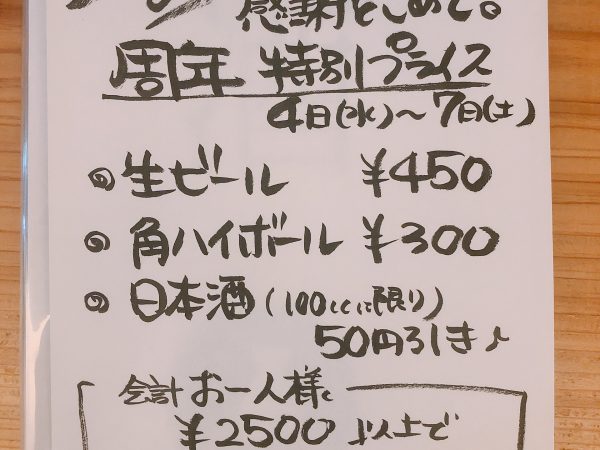 感謝をこめて。
周年 特別プライス
4日(水)～7日(土)
生ビール ¥450
角ハイボール ¥300
日本酒(100ccに限り)
50円引き♪
会計お一人様
¥2500以上で